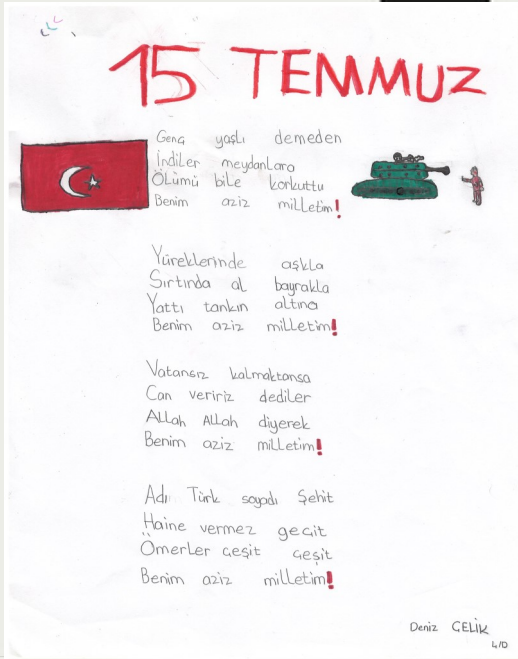 15 TEMMUZ
Genç yaşlı demeden
İndiler meydanlara
Ölümü bile korkuttu
Benim aziz milletim!
Yüreklerinde aşkla
Sırtında al bayrakla
Yattı tankın altına
Benim aziz milletim!
Vatansız kalmaktansa
Can veririz dediler
Allah Allah diyerek
Benim aziz milletim!
Adı Türk soyadı Şehit
Haine vermez geçit
Ömerler çeşit çeşit
Benim aziz milletim!
Deniz ÇELİK
4/D